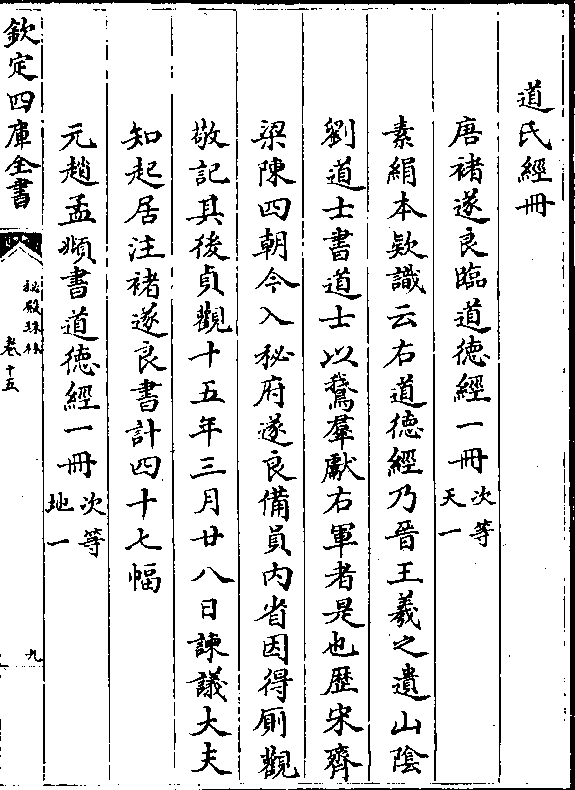 道氏經冊
唐褚遂良臨道德經一冊次等天一
素絹本欵識云右道德經乃晉王羲之遺山陰
劉道士書道士以鵞羣獻右軍者是也歴宋齊
梁陳四朝今入秘府遂良備員内省因得厠觀
敬記其後貞觀十五年三月廿八日諫議大夫
知起居注褚遂良書計四十七幅
元趙孟頫書道德經一冊次等地一
欽定四庫全書
秘殿珠林
卷十五
九